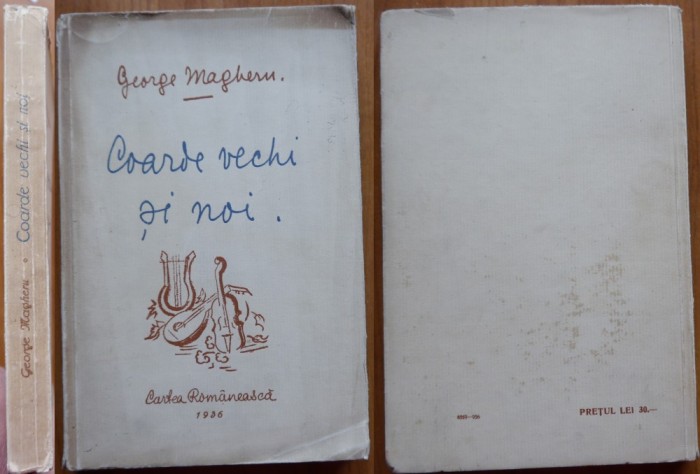 George Magheru • Coarde vechi și noi
George Magheru.
Coarde vechi
și noi.
Cartea Românească
1936
PREȚUL LEI 30.—